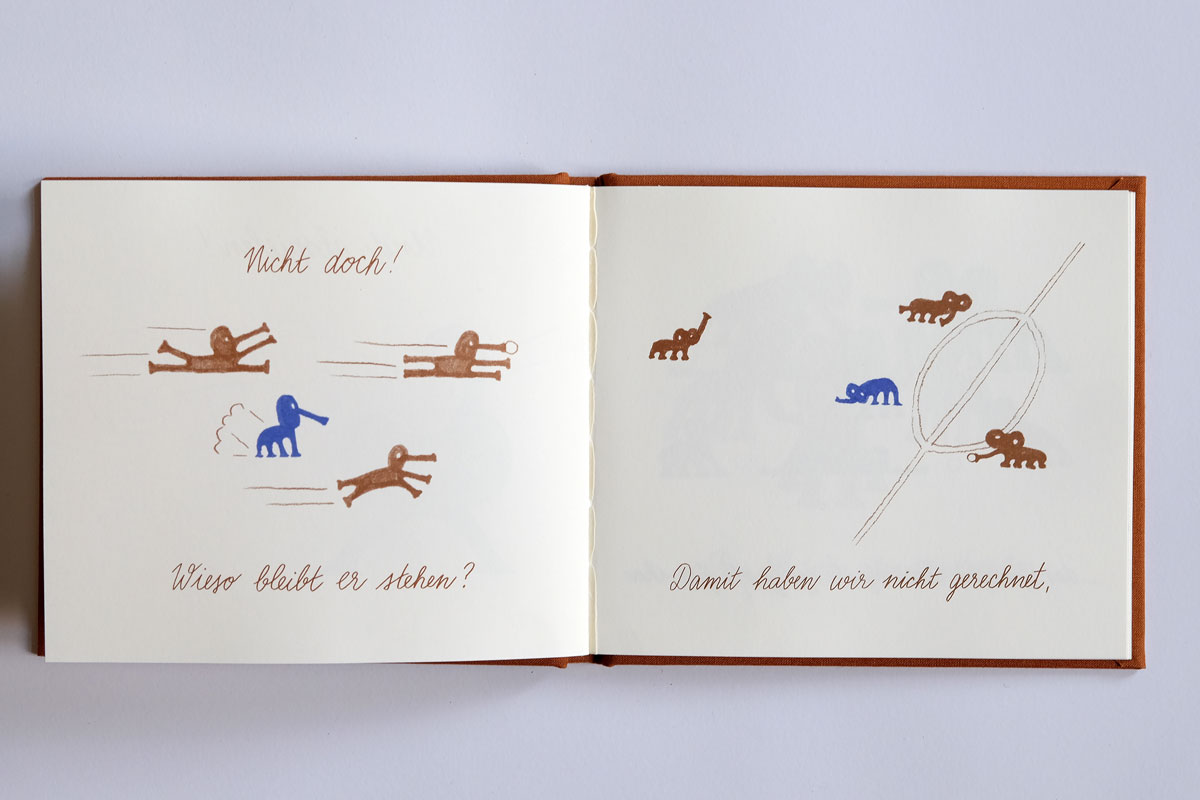 Nicht doch!
Wieso bleibt er stehen?
Damit haben wir nicht gerechnet,